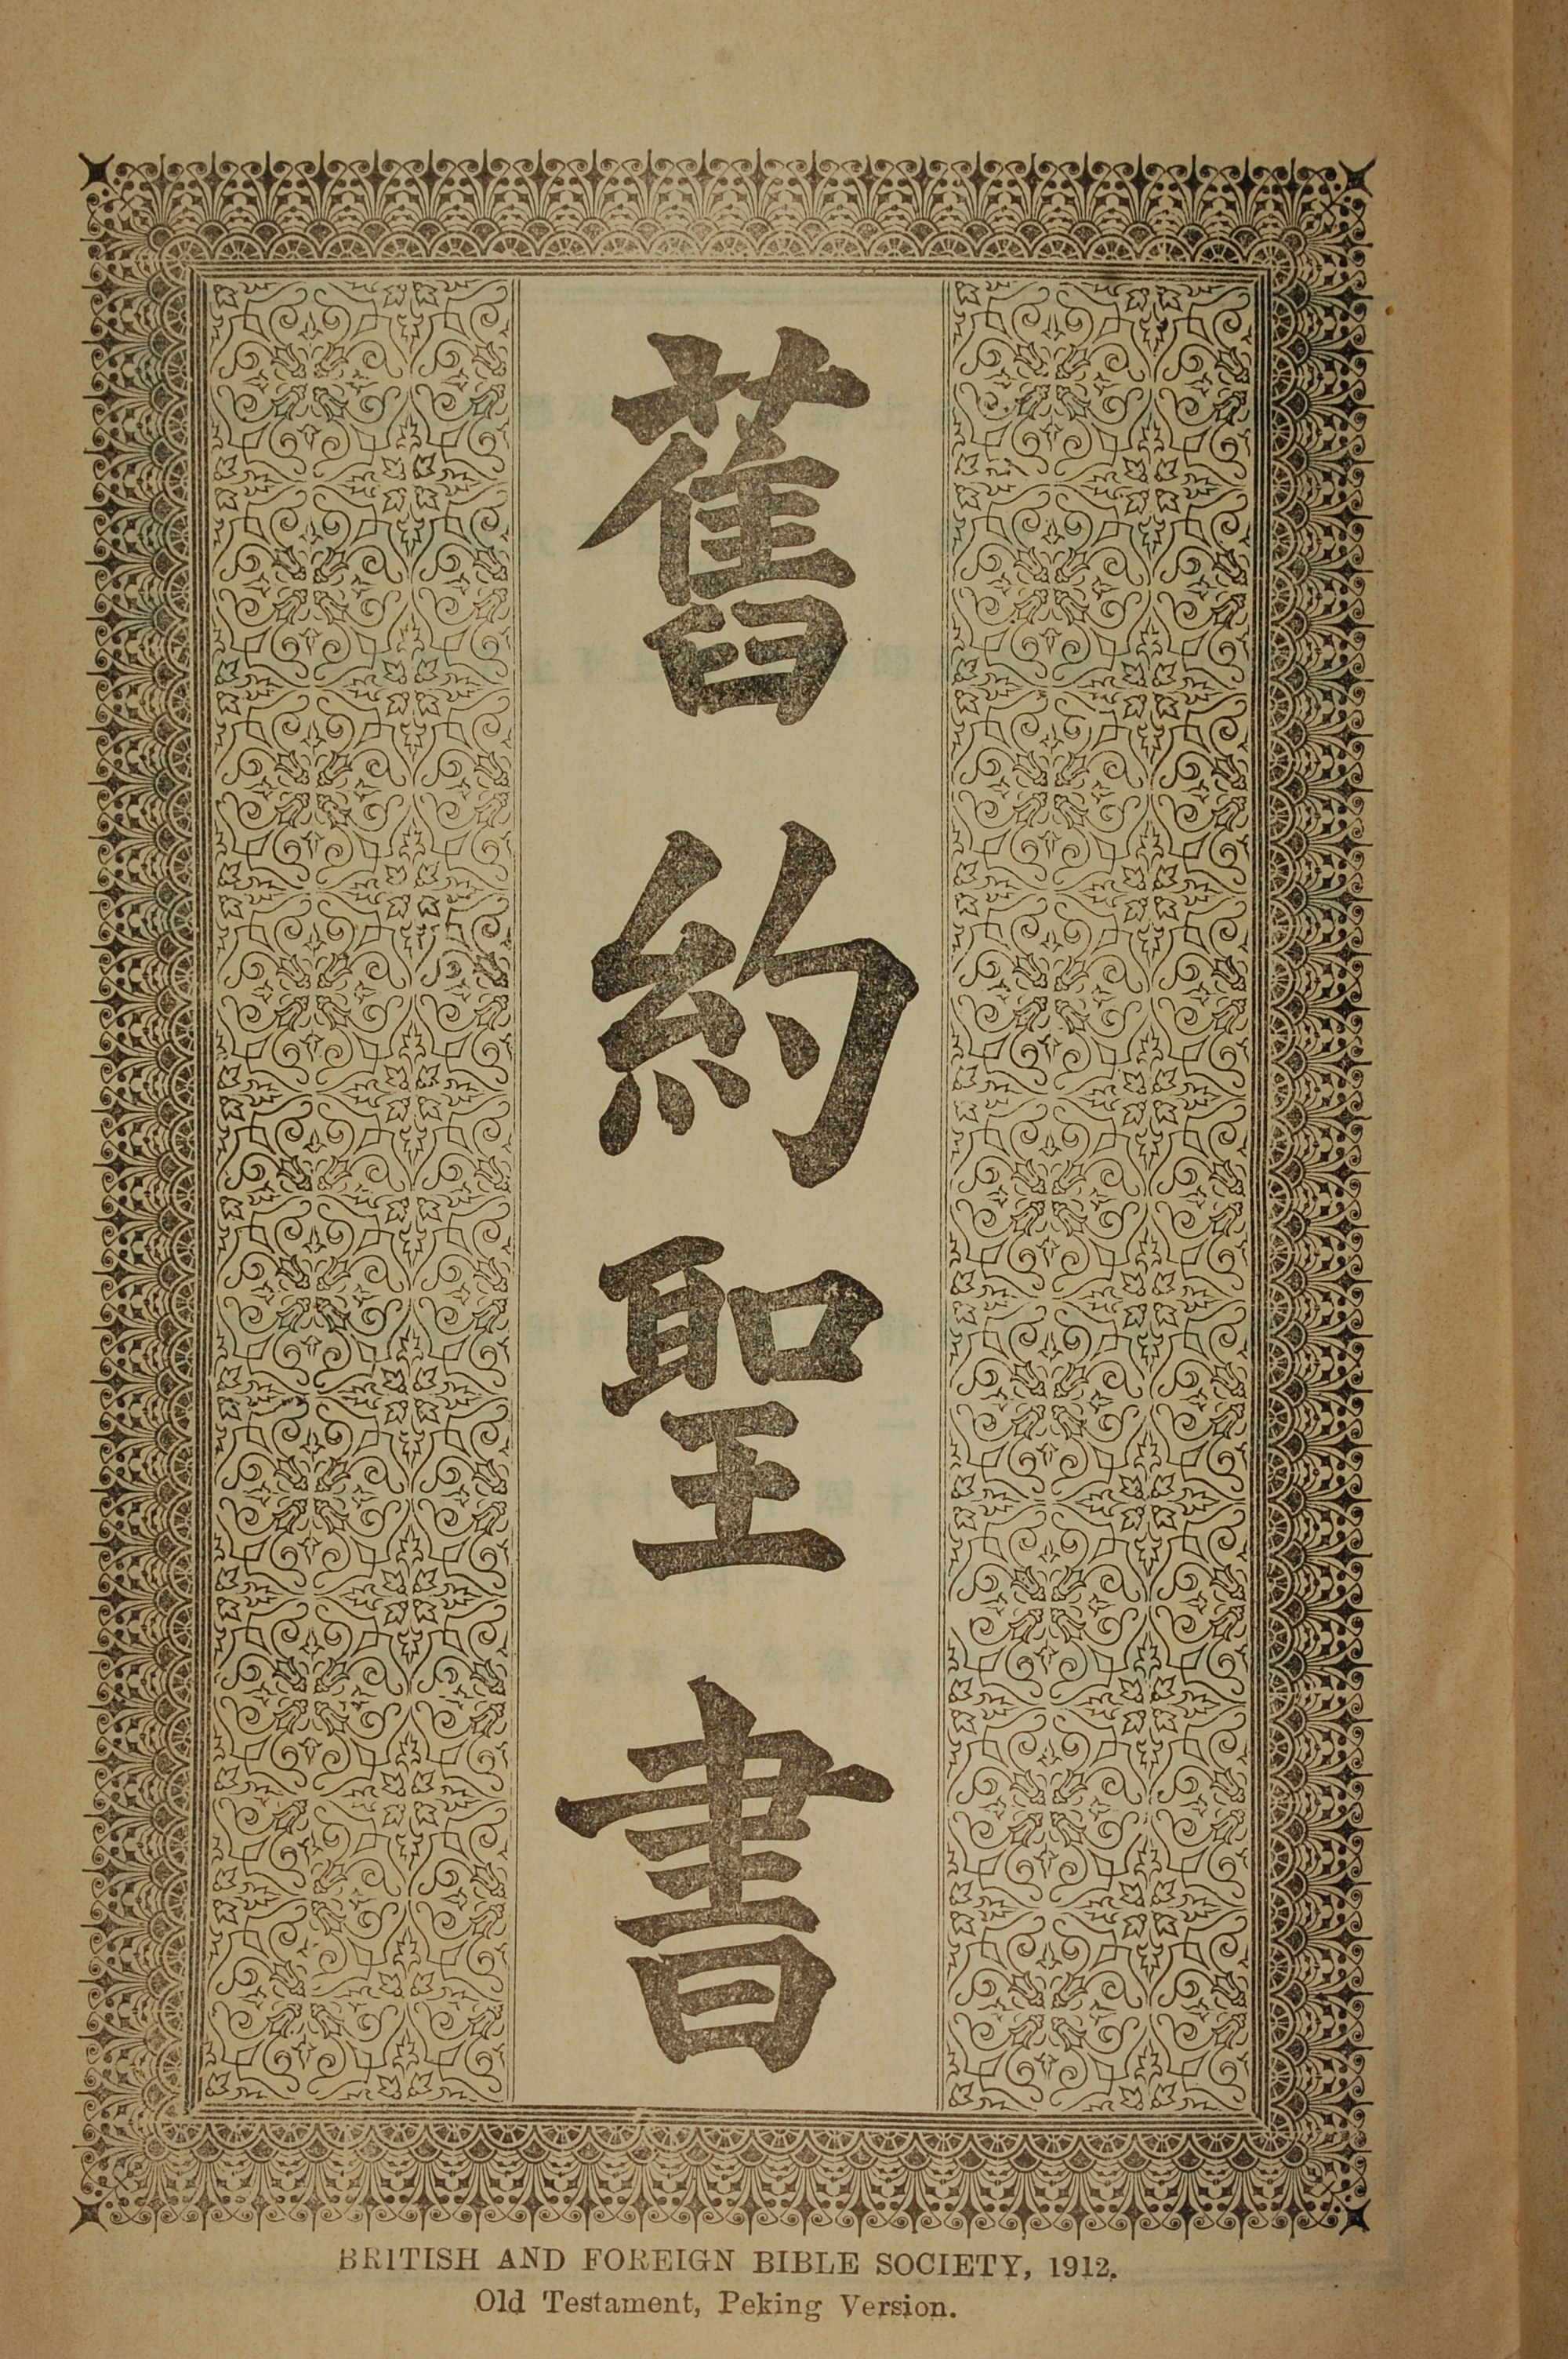 舊約聖書
BRITISH AND FOREIGN BIBLE SOCIETY, 1912.
Old Testament, Peking Version.